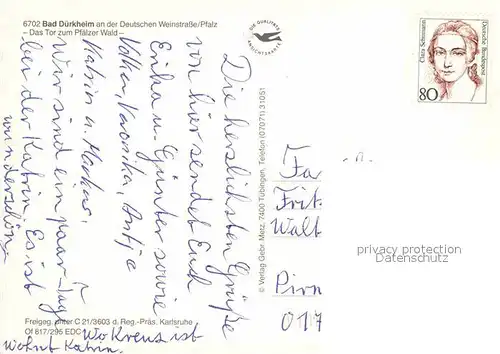 6702 Bad Dürkheim an der Deutschen Weinstraße/Pfalz
– Das Tor zum Pfälzer Wald –
DIE QUALITÄTS
ANSICHTSKARTE
Clara Schumann
Deutsche Bundespost
80
Die herzlichsten Grüße
von hier sendet Euch
Erika u. Günter sowie
Volker, Veronika, Antje
Katrin u. Markus.
Wir sind ein paar Tage
bei der Katrin. Es ist
wunderschön
Wo Kreuz ist
wohnt Katrin.
© Verlag Gebr. Metz, 7400 Tübingen, Telefon (07071) 31051
Fa
Frit
Walt
Pirn
017
privacy protection
Datenschutz
Freigeg. unter C 21/3603 d. Reg.-Präs. Karlsruhe
Of 817/295 EDC